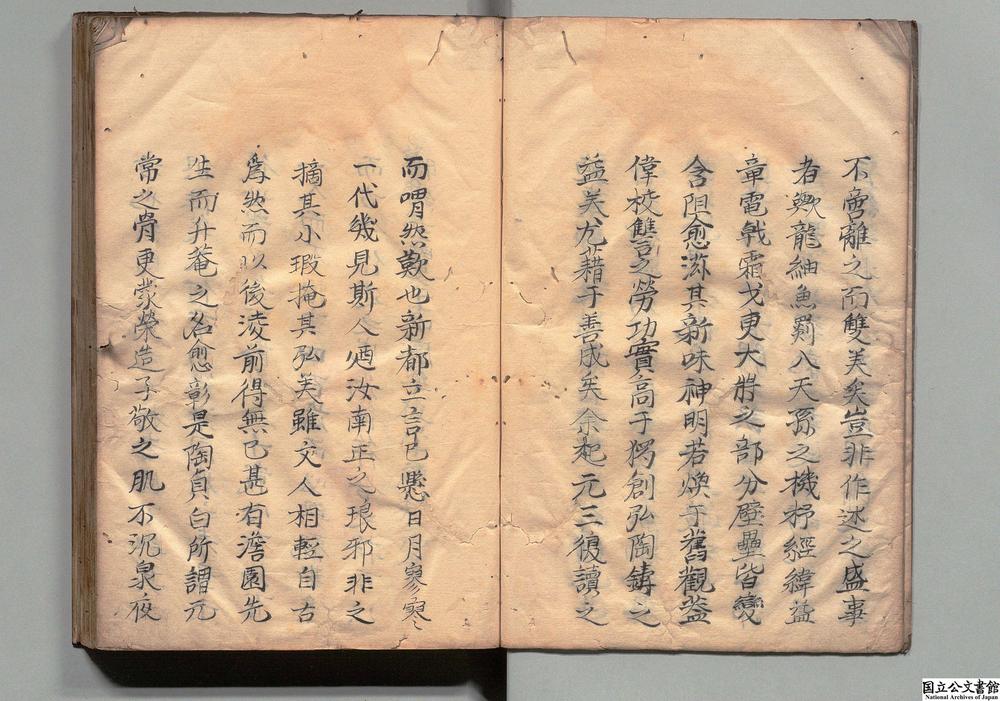 不啻離之而雙美矣豈非作述之盛事
者歟龍紬魚罽入天孫之機杼經緯益
章電戟霜戈更大將之部分壁壘皆變
含阻愈滋其新味神明若煥于舊觀蓋
偉校讎之勞功實高于獨創弘陶鑄之
益美尤藉于善成矣余起元三復讀之
而喟然歎也新都立言已懸日月寥寥
一代幾見斯人迺汝南正之琅邪非之
摘其小瑕掩其弘美雖交人相輕自古
為然而以後淩前得無已甚有澹園先
生而升菴之名愈彰是陶貞白所謂元
常之骨更蒙榮造子敬之肌不沉泉夜
国立公文書館
National Archives of Japan